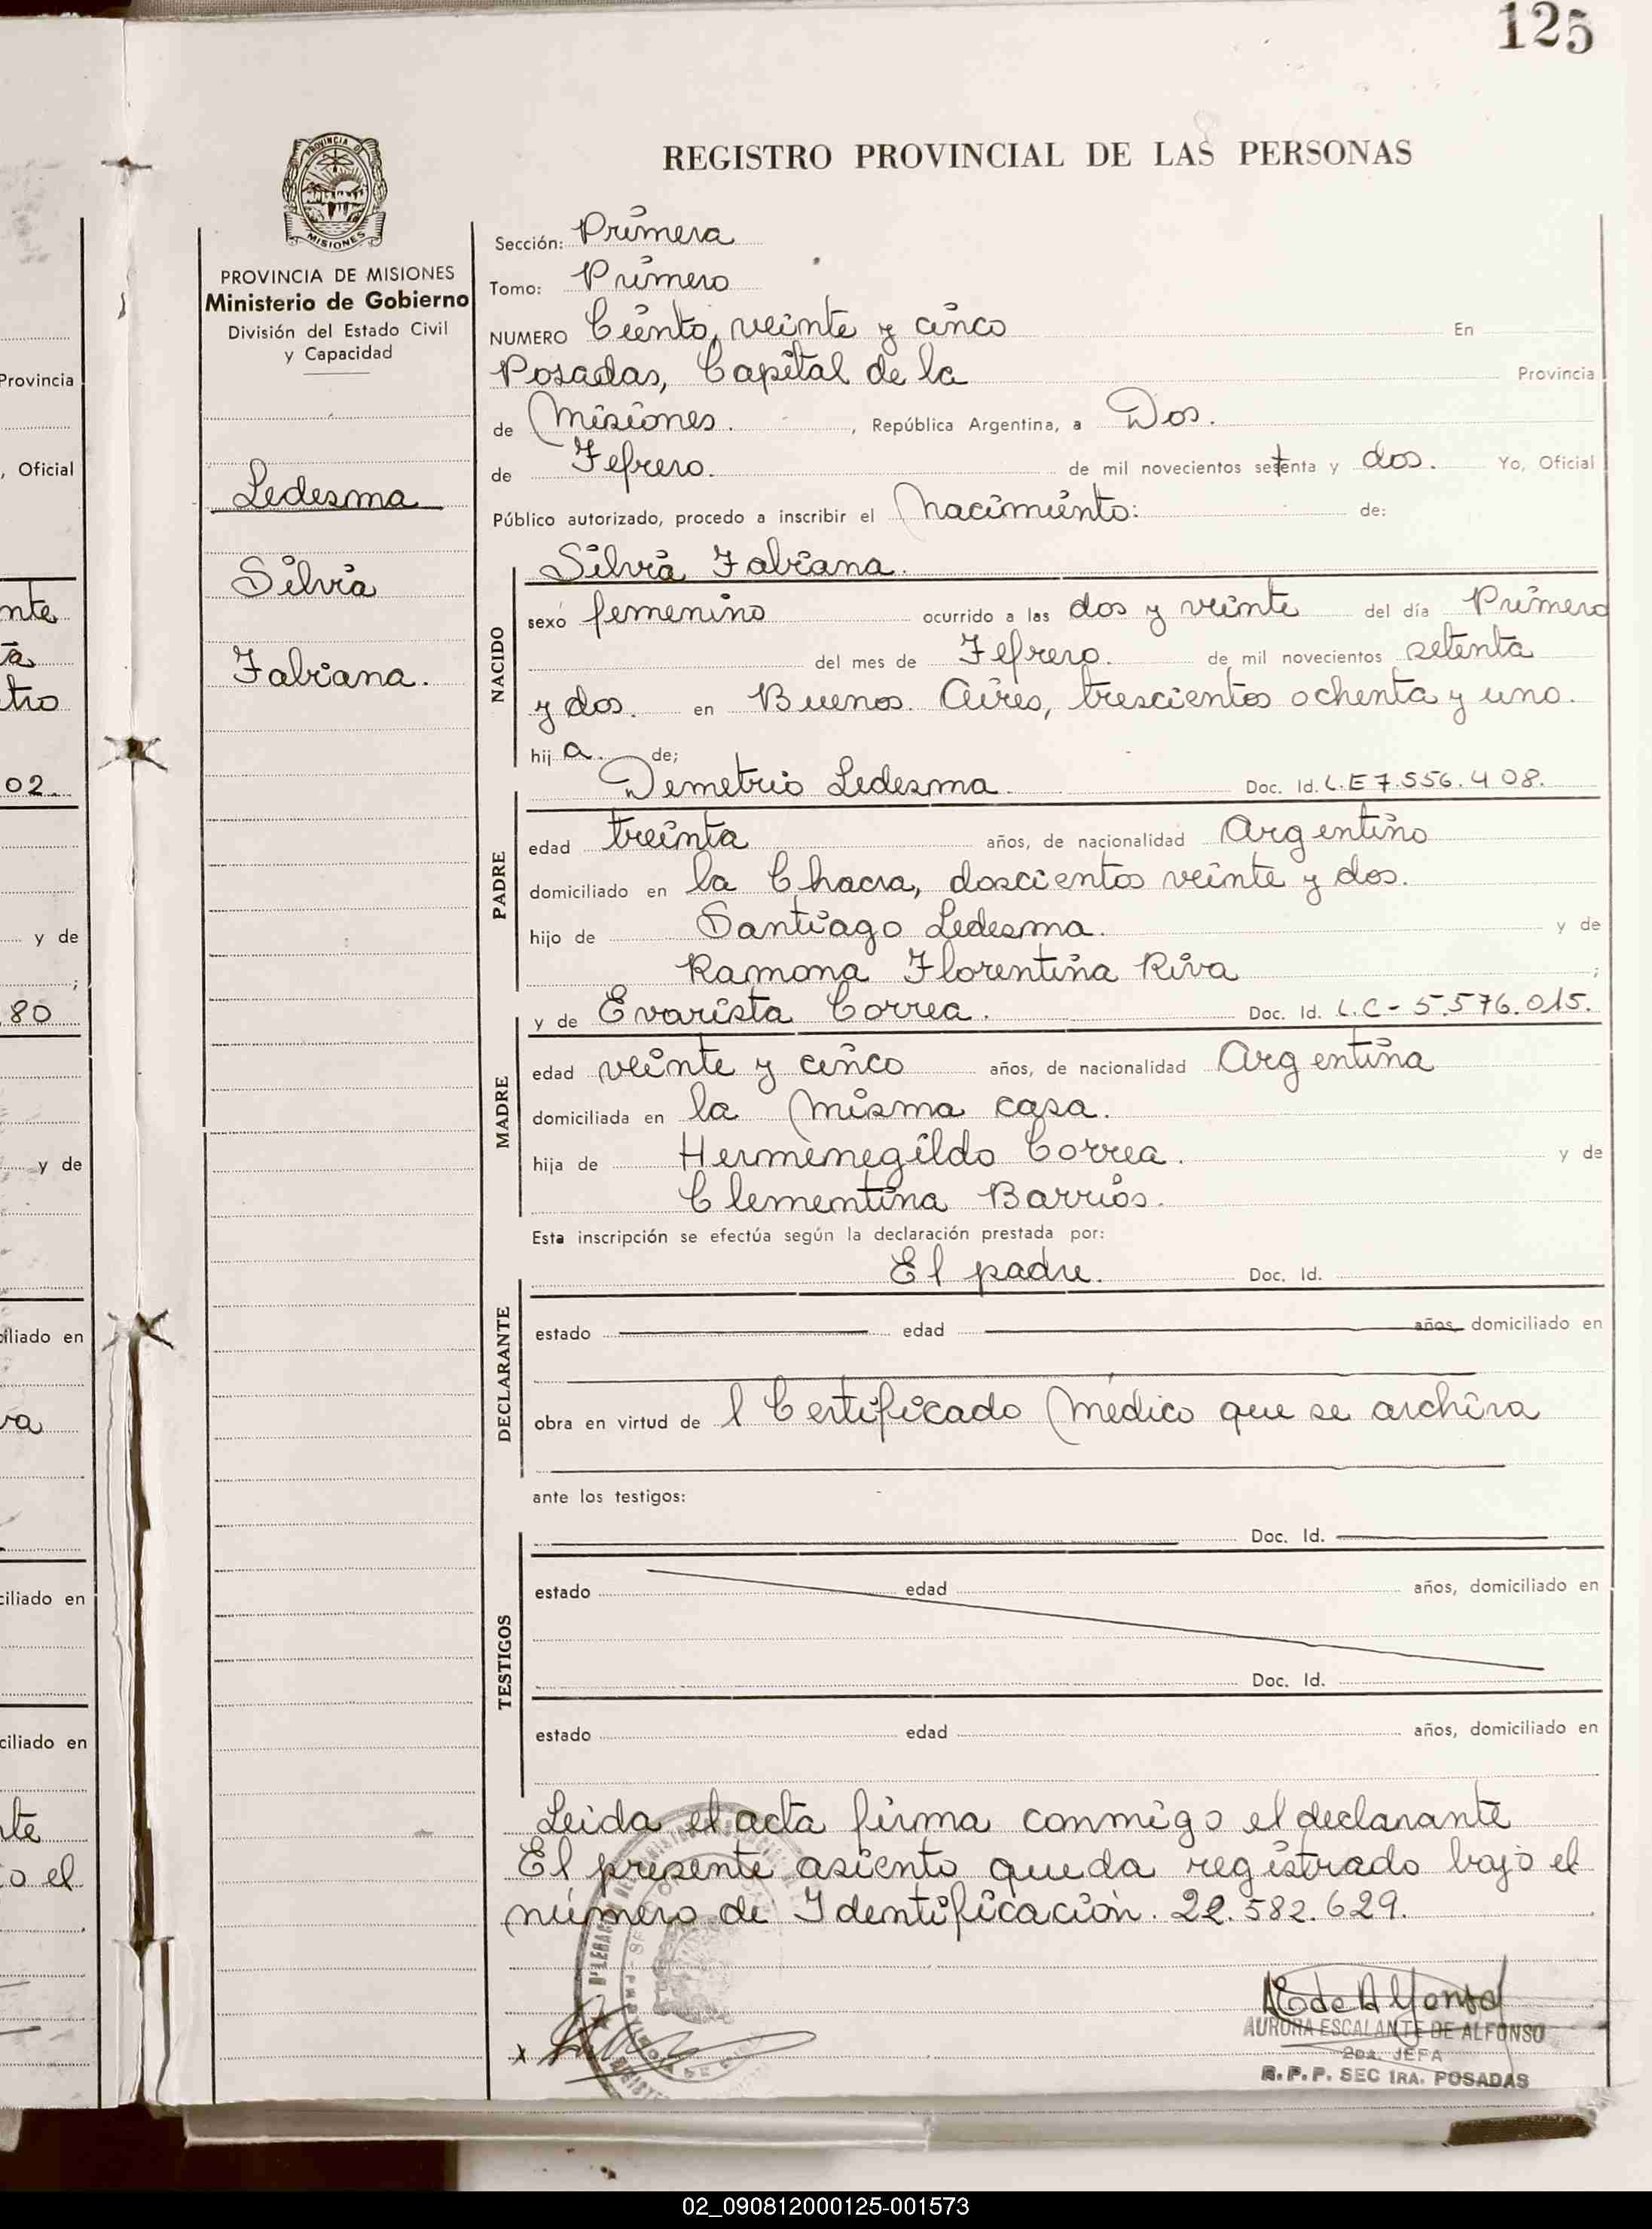 125
REGISTRO PROVINCIAL DE LAS PERSONAS
PROVINCIA DE MISIONES
MISIONES
PROVINCIA DE MISIONES
Ministerio de Gobierno
División del Estado Civil
y Capacidad
Ledesma
Silvia
Fabiana.
Sección: Primera
Tomo: Primero
NUMERO Ciento, veinte y cinco En
Posadas, Capital de la Provincia
de Misiones. , República Argentina, a Dos.
de Febrero. de mil novecientos setenta y dos. Yo, Oficial
Público autorizado, procedo a inscribir el nacimiento: de:
Silvia Fabiana.
NACIDO
sexo femenino ocurrido a las dos y veinte del día Primero
del mes de Febrero. de mil novecientos setenta
y dos. en Buenos Aires, trescientos ochenta y uno.
hij a. de;
Demetrio Ledesma. Doc. Id. L.E 7.556.408.
PADRE
edad treinta años, de nacionalidad Argentino
domiciliado en la Chacra, doscientos veinte y dos.
hijo de Santiago Ledesma. y de
Ramona Florentina Riva ;
y de Evarista Correa. Doc. Id. L.C - 5.576.015.
MADRE
edad veinte y cinco años, de nacionalidad Argentina
domiciliada en la misma casa.
hija de Hermenegildo Correa. y de
Clementina Barrios.
Esta inscripción se efectúa según la declaración prestada por:
El padre. Doc. Id.
DECLARANTE
estado edad años, domiciliado en
obra en virtud de l Certificado médico que se archiva
ante los testigos:
Doc. Id.
TESTIGOS
estado edad años, domiciliado en
Doc. Id.
estado edad años, domiciliado en
Leida el acta firma conmigo el declarante
El presente asiento queda registrado bajo el
número de Identificación. 22.582.629.
AE de Alfonso
AURORA ESCALANTE DE ALFONSO
2DA. JEFA
R.P.P. SEC 1RA. POSADAS
Provincia
, Oficial
nte
tro
02.
y de
;
80
y de
ciliado en
va
ciliado en
ciliado en
te
o el
02_090812000125-001573